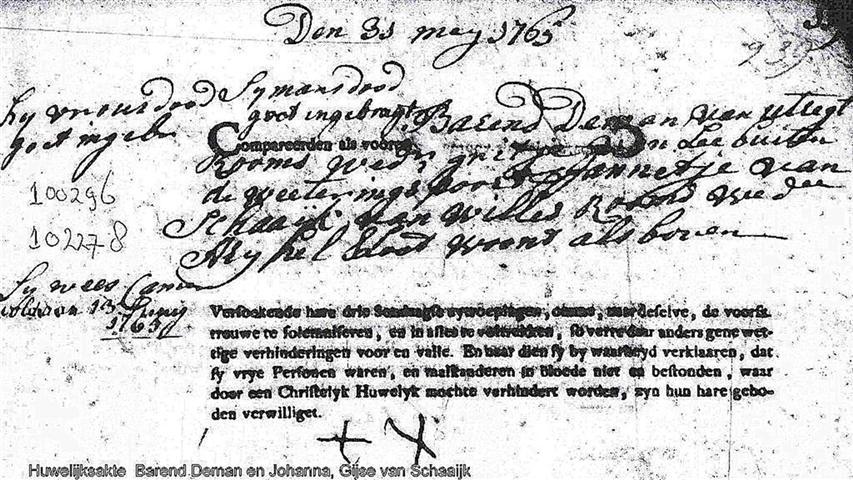 Den 31 mey 1765
939
Sy vrous dood
goet ingebr
Sy mans dood
goet ingebragt
Barend Deman van uttregt
Compareerden als vooren
Rooms wed
buiten
de weeterings poort Johannetje van
Schaaijk van Willes Rooms wedue
Myhel woont als boven
100296
102278
Sy wees Camer
voldaan 13 Juny
1765
Versoekende hare drie Sondaagse uytroepingen, omme, naar deselve, de voorsz.
trouwe te solemniseren, en in alles te voltrekken, so verre daar anders gene wet-
tige verhinderingen voor en valle. En naar dien sy by waarheyd verklaaren, dat
sy vrye Personen waren, en malkanderen in bloede niet en bestonden, waar
door een Christelyk Huwelyk mochte verhindert worden, zyn hun hare gebo-
den verwilliget.
Huwelijksakte Barend Deman en Johanna, Gijse van Schaaijk